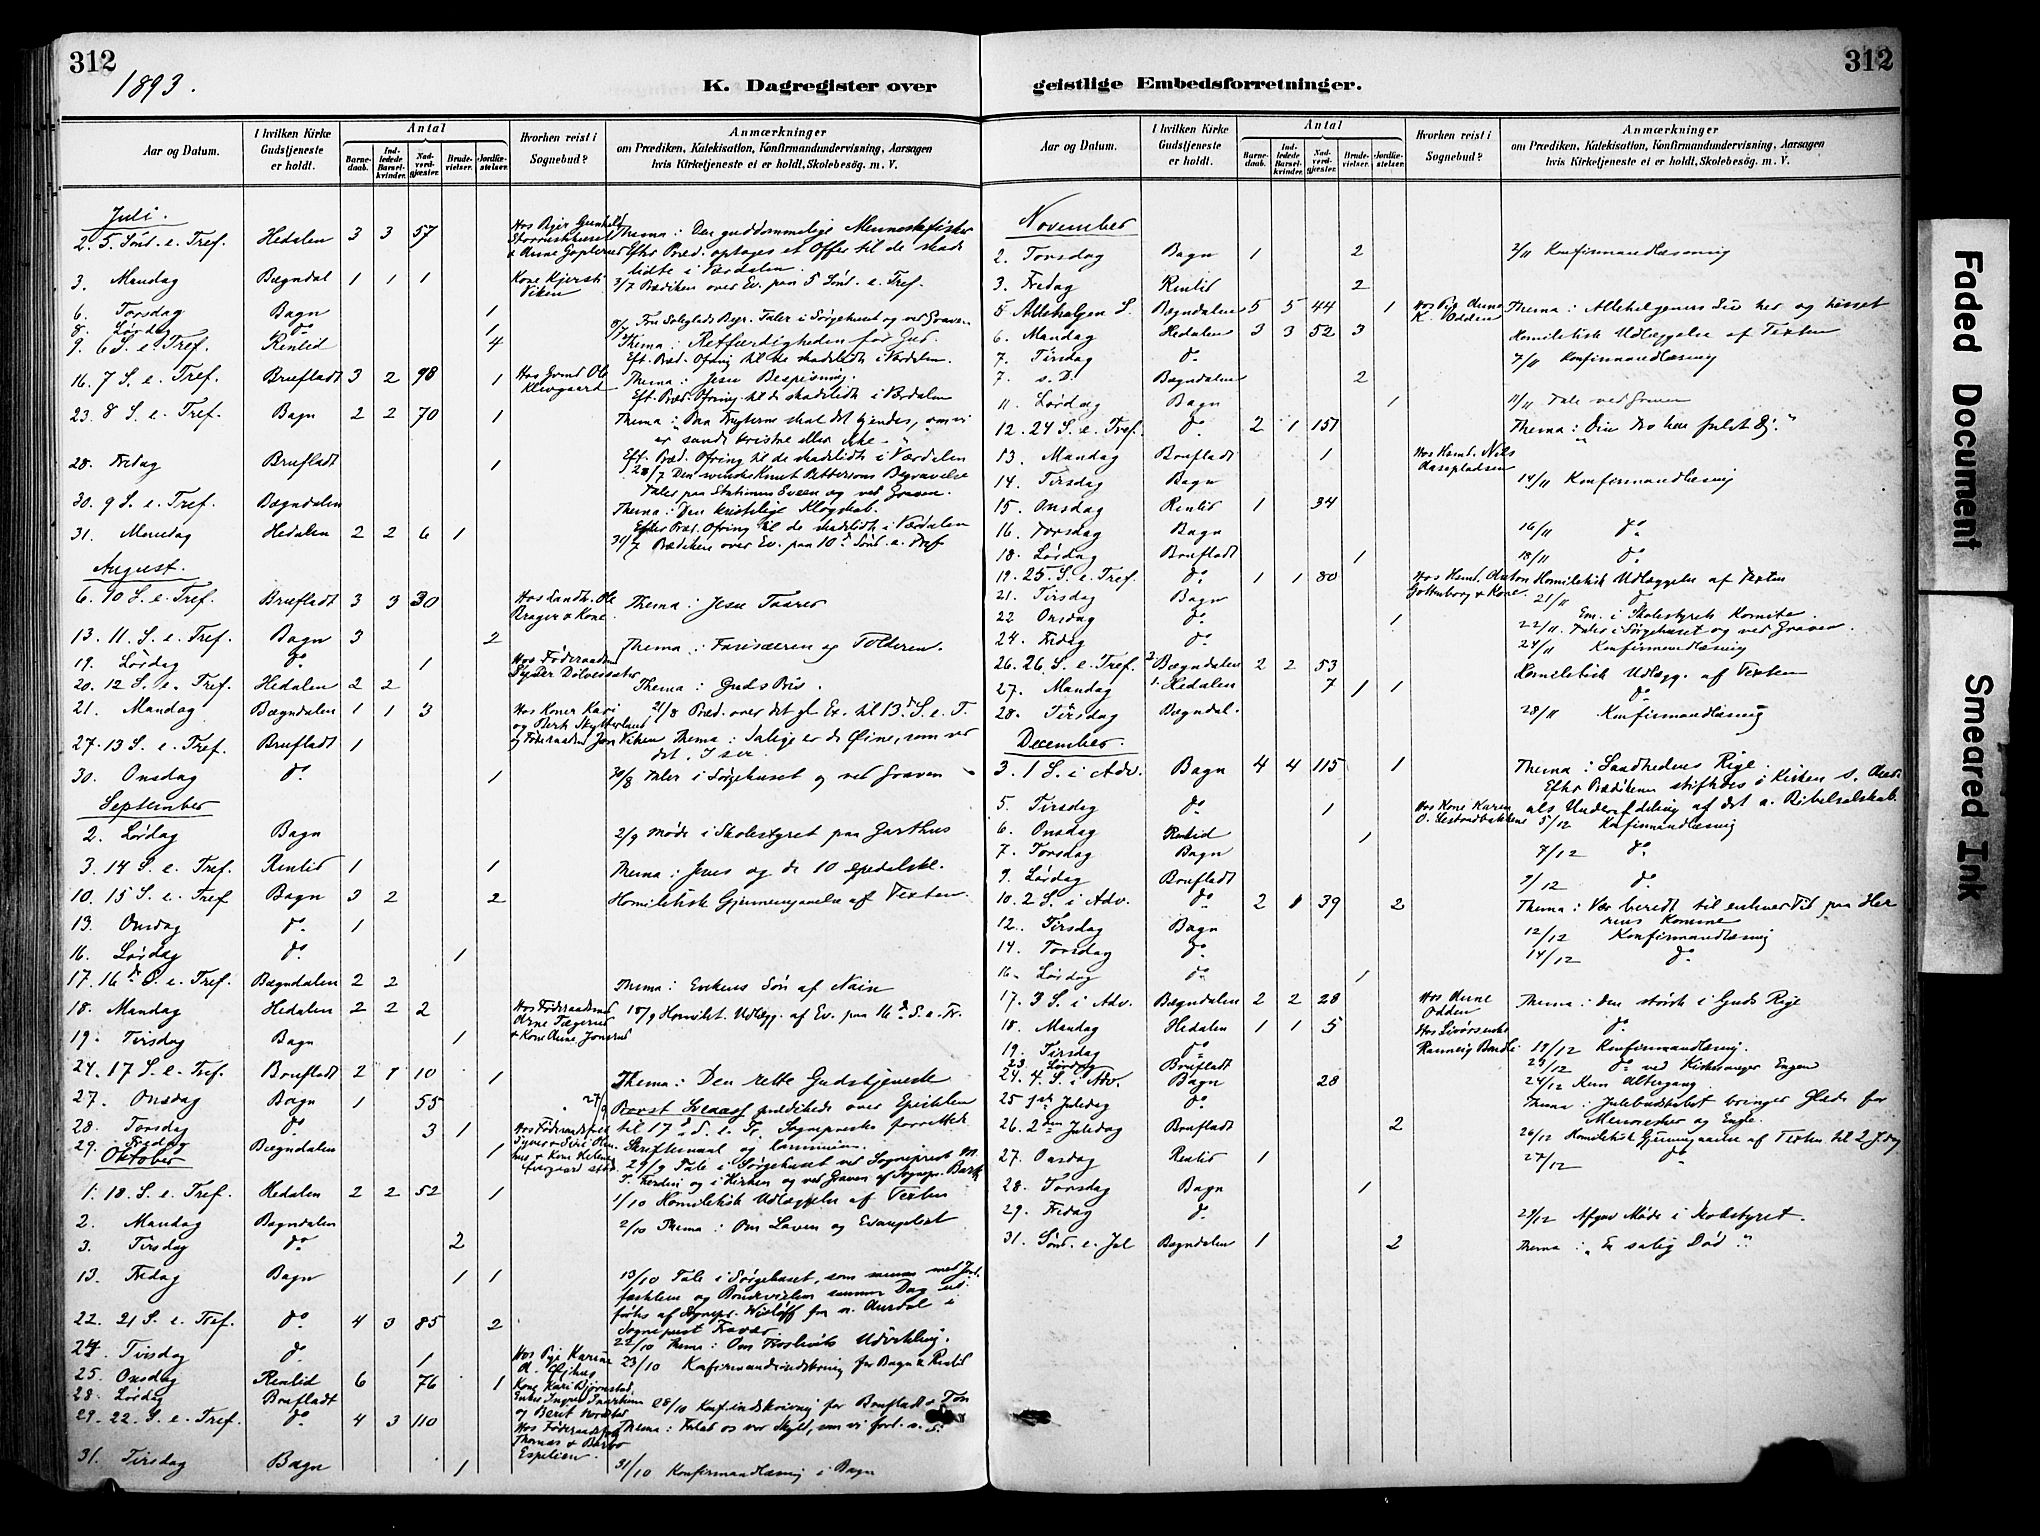 312
1893.
K. Dagregister over
Aar og Datum.
I hvilken Kirke Gudstjeneste er holdt.
Antal
Barnedaab.
Indledede Barselkvinder.
Nadverdgjæster.
Brudevielser.
Jordfæstelser.
Hvorhen reist i Sognebud?
Anmærkninger
om Prædiken, Katekisation, Konfirmandundervisning, Aarsagen
hvis Kirketjeneste ei er holdt, Skolebesøg. m. V.
Juli.
2. 5. Sönd. e. Tref. Hedalen 3 3 57 Thema: Den guddommelige Menneskefisker
Efter Præd. optages et Offer til de skadelidte i Værdalen.
3. Mandag Bægndal 1 1 1 Kone Kjersti Viken 3/7 Prædiken over Ev. paa 5 Sönd. e. Tref.
6. Torsdag Bagn 1
8. Lördag do 1
9. 6 S. e. Tref. Reinlid 4 Thema: Retfærdigheden for Gud.
Eft. Præd. Ofring til de skadelidte i Værdalen.
16. 7 S. e. Tref. Bruflat 3 2 98 1 Thema: Jesu Bespisning.
Eft. Præd. Ofring til de skadelidte i Værdalen
23. 8 S. e. Tref. Bagn 2 2 70 1 Thema: "Paa Frugterne skal det kjendes, om vi
er sande kristne eller ikke."
Eft. Præd. Ofring til de skadelidte i Værdalen
28. Fredag Brufladt 1 28/7 Den svenske Knut Pettersons Begravelse
Taler paa Stationen Sveen og ved Graven.
30. 9 S. e. Tref. Bægndalen Thema: Den kristelige Klogskab.
Efter Præd. Ofring til de skadelidte i Værdalen
31. Mandag Hedalen 2 2 6 1 31/7 Prædiken over Ev. paa 10d Sönd. e. Tref
August.
6. 10 S. e. Tref. Brufladt 3 3 30 Thema: Jesu Taarer
13. 11. S. e. Tref. Bagn 3 2 Thema: Farisæeren og Tolderen.
19. Lördag do 1
20. 12 S. e. Tref. Hedalen 2 2 Thema: Guds Pris.
21. Mandag Bægndalen 1 1 3 Hos Konerne Kari 21/8 Præd. over det gl. Ev. til 13d S. e. T.
27. 13 S. e. Tref. Brufladt 1 Thema: Salige er de Øine, som ser
det, I ser
30. Onsdag do 1 30/8 Taler i Sørgehuset og ved Graven
September
2. Lördag Bagn 2/9 Møde i Skolestyret paa Garthus
3. 14 S. e. Tref. Reinlid 1 1 Thema: Jesus og de 10 spedalske.
10. 15 S. e. Tref Bagn 3 2 2 Homiletisk Gjennemgaaelse af Texten
13. Onsdag do 1
16. Lördag do 1
17. 16d S. e. Tref. Bægndalen 2 2 Thema: Enkens Sön af Nain
18. Mandag Hedalen 2 2 2 18/9 Homilet. Udlægg. af Ev. paa 16d S. e. Tr.
19. Tirsdag Bagn 1
24. 17 S. e. Tref. Brufladt 2 1 10 1 Thema: Den rette Gudstjeneste
27. Onsdag Bagn 1 55 27/9 Provst prædikede over Epistelen
til 17d S. e. Tr. Sognepræsten forrettede
28. Torsdag do 3 1 Skriftemaal og Kommunion.
29. Fredag Bægndalen 1 29/9 Tale i Sørgehuset ved Sognepræst
og i Kirken og ved Graven af Sognepr.
Oktober
1. 18. S. e. Tref. Hedalen 2 2 52 1 1/10 Homiletisk Udlæggelse af Texten
2. Mandag Bægndalen 2/10 Thema: Om Loven og Evangeliet
3. Tirsdag do 2
13. Fredag Bagn 1 1 13/10 Tale i Sørgehuset, som sammen med Jordfæstelsen og Brudevielsen samme Dag
udførtes af Sognepr. Wisløff fra n. Aurdal i
Sognepræst Fravær.
22. 21 S. e. Tref. do 4 3 85 2 22/10 Thema: Om Troslivets Udvikling.
24. Tirsdag do 1 23/10 Konfirmandindskrivning for Bagn & Reinlid
25. Onsdag Reinlid 6 76 1 Kone Kari Bjørnstad,
28. Lördag Brufladt 28/10 Konf.indskrivning for Brufladt
29. 22. S. e. Tref. do 4 3 110 Thema: Forlad os vor Skyld, som vi forl. o. s.
31. Tirsdag Bagn 1 31/10 Konfirmandlæsning i Bagn
312
geistlige Embedsforretninger.
Aar og Datum.
I hvilken Kirke Gudstjeneste er holdt.
Antal
Barnedaab.
Indledede Barselkvinder.
Nadverdgjæster.
Brudevielser.
Jordfæstelser.
Hvorhen reist i Sognebud?
Anmærkninger
om Prædiken, Katekisation, Konfirmandundervisning, Aarsagen
hvis Kirketjeneste ei er holdt, Skolebesøg. m. V.
November
2. Torsdag Bagn 1 2 2/11 Konfirmandlæsning
3. Fredag Reinlid 2
5 Allehelgen S. Bægndalen 5 5 44 1 Thema: Allehelgenes Liv her og hisset
6. Mandag Hedalen 3 3 52 3 Homiletisk Udlæggelse af Texten
7. Tirsdag do 7/11 Konfirmandlæsning
7. s. D. Bægndalen 2
11. Lördag Bagn 1 11/11 Tale ved Graven
12. 24 S. e. Tref. do 2 1 151 Thema: "Din Tro har frelst dig."
13. Mandag Brufladt 1 Hos Husmd. Nils
14. Tirsdag Bagn 14/11 Konfirmandlæsning
15. Onsdag Reinlid 1 34
16. Torsdag Bagn 16/11 do
18. Lördag Brufladt 1 18/11 do
19. 25. S. e. Tref. do 1 1 80 Homiletisk Udlæggelse af Texten
21. Tirsdag Bagn 21/11 do
22 Onsdag do 1 Em. i Skolestyrets Komite.
22/11. Taler i Sørgehuset og ved Graven.
24. Fredag do 24/11 Konfirmandlæsning
26. 26. S. e. Tref. Bægndalen 2 2 53 Homiletisk Udlægg. af Texten
27. Mandag Hedalen 7 1 1 do
28. Tirsdag Bægndal. 28/11 Konfirmandlæsning
December.
3. 1 S. i Adv. Bagn 4 4 115 1 Thema: Sandhedens Rige.
Efter Prædiken stiftedes i Kirken
als Underafdeling af det n. Bibelselskab.
5. Tirsdag do 1 Hos Kone Karen 5/12 Konfirmandlæsning
6. Onsdag Reinlid 1
7. Torsdag Bagn 7/12 do
9. Lördag Brufladt 9/12 do
10. 2 S. i Adv. do 2 1 39 2 Thema: Vær beredt til enhver Tid paa Herrens Komme
12. Tirsdag Bagn 12/12 Konfirmandlæsning
14. Torsdag do 14/12 do
16. Lördag do 1
17. 3 S. i Adv. Bægndalen 2 2 28 Hos Arne Odden Thema: den störste i Guds Rige
18. Mandag Hedalen 1 1 5 do
19. Tirsdag do 19/12 Konfirmandlæsning.
23 Lördag Brufladt 23/12 do ved Kirkesanger Engen
24. 4. S. i Adv. Bagn 28 24/12 Kun Altergang
25 1ste Juledag do Thema: Julebudskabet bringer Glæde for
Mennesker og Engle.
26. 2den Juledag Brufladt 2 26/12 Homiletisk Gjennemgaaelse af Texten til 2 Jdag
27. Onsdag Reinlid 1 27/12 do
28. Torsdag Bagn 1
29. Fredag do 29/12 Afgav Møde i Skolestyret.
31. Sönd. e. Jul Bægndalen 1 2 Thema: "En salig Död".
Faded Document
Smeared Ink